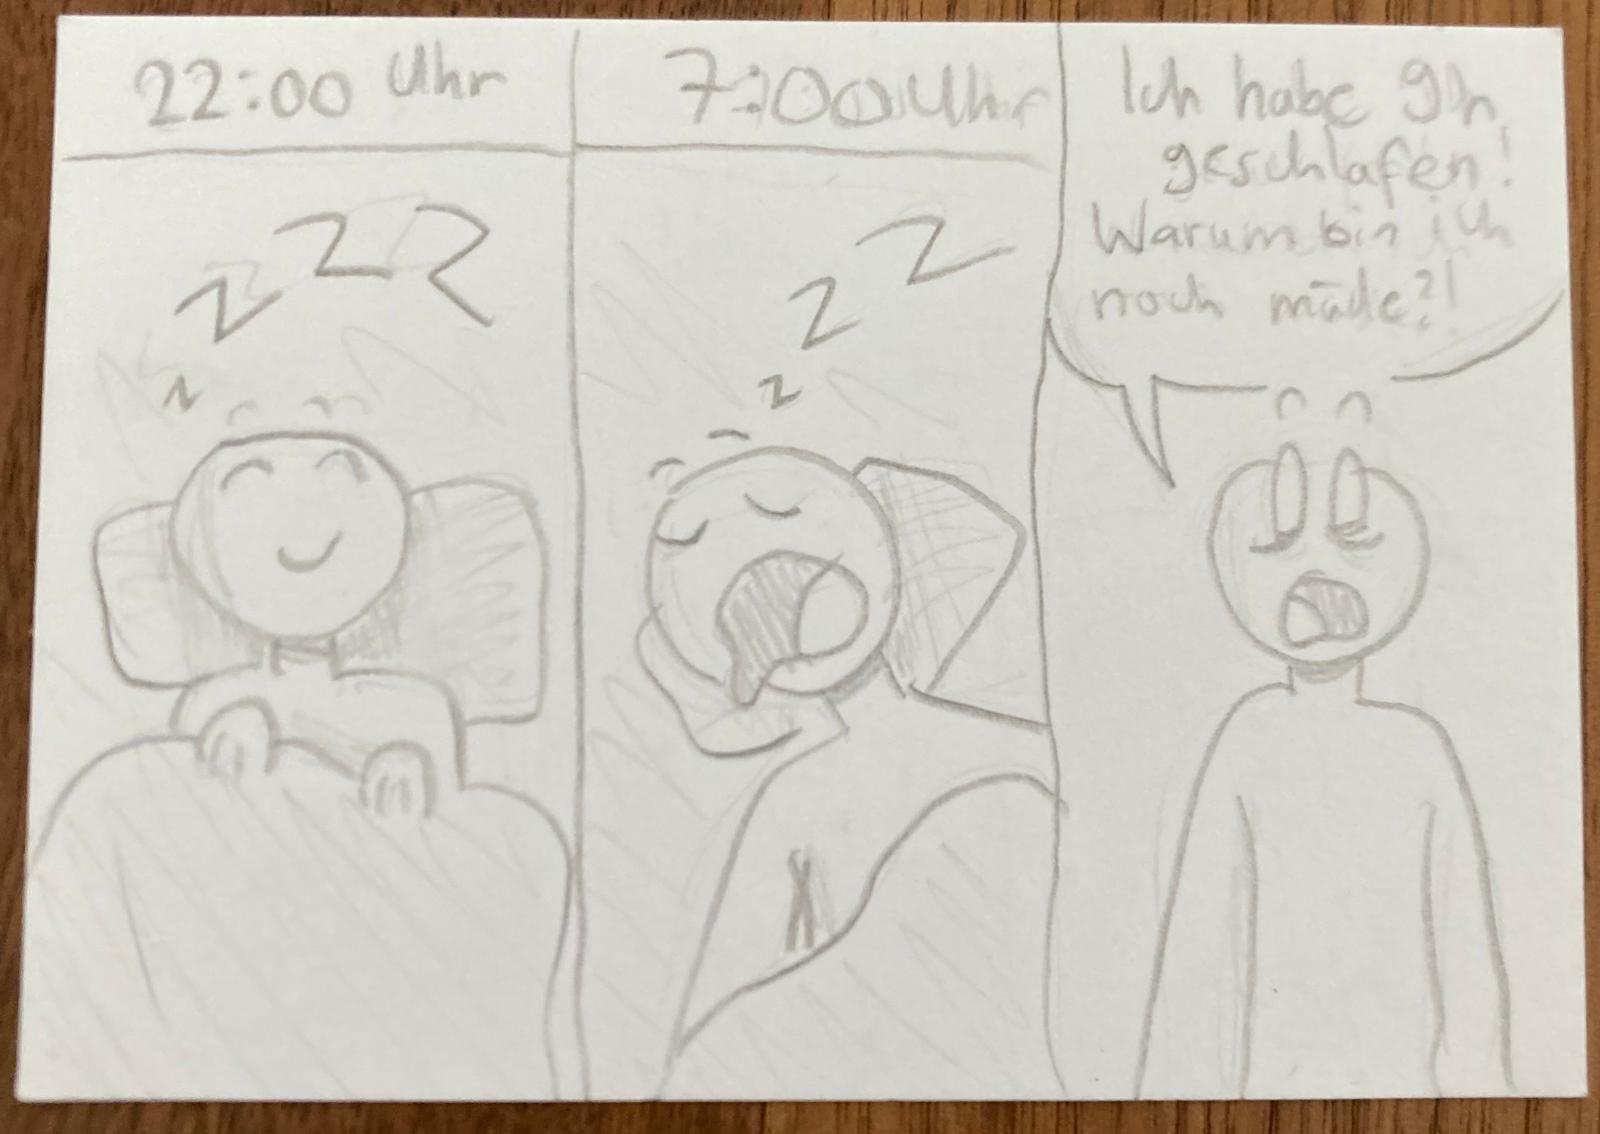 22:00 Uhr
z z z z
7:00 Uhr
z z z
Ich habe 9h
geschlafen!
Warum bin ich
noch müde?!